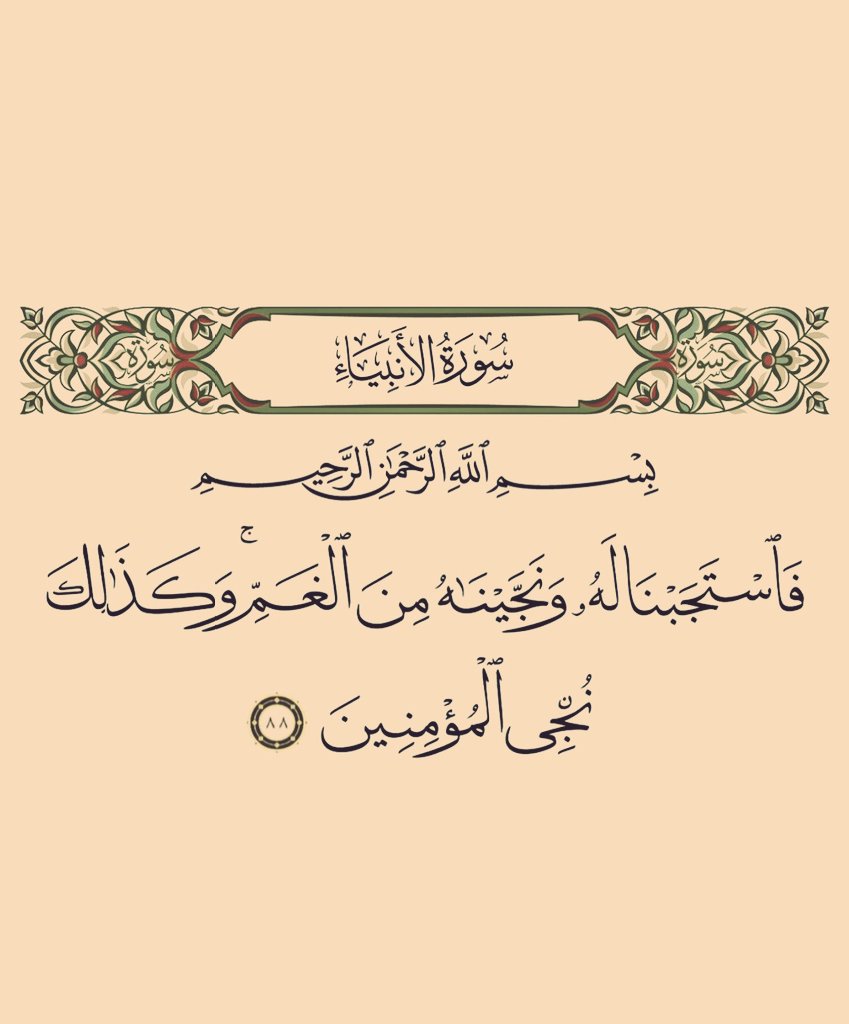 سورة سُورَةُ الأَنبِيَاءِ سورة
بِسْمِ ٱللَّهِ ٱلرَّحْمَٰنِ ٱلرَّحِيمِ
فَٱسْتَجَبْنَا لَهُۥ وَنَجَّيْنَٰهُ مِنَ ٱلْغَمِّ ۚ وَكَذَٰلِكَ
نُۨجِى ٱلْمُؤْمِنِينَ ٨٨